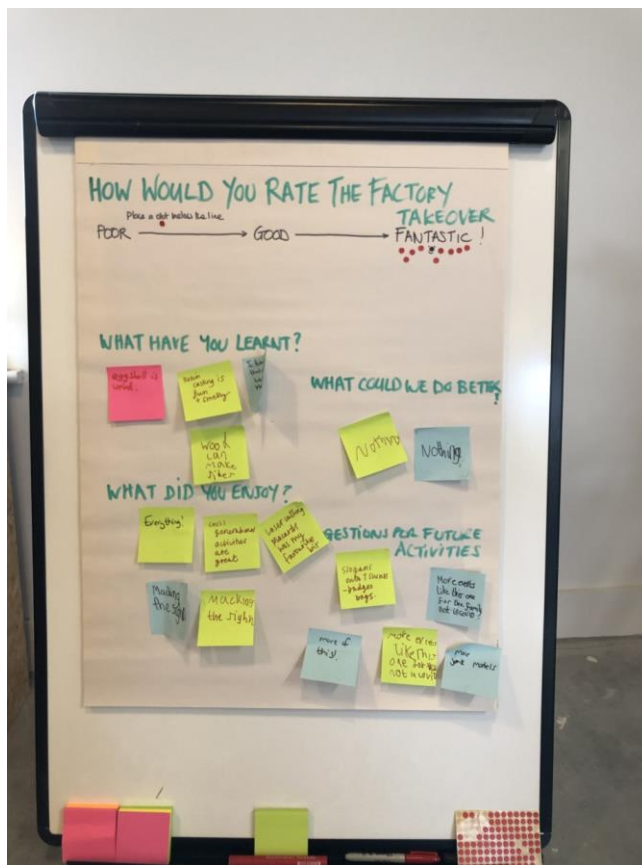 HOW WOULD YOU RATE THE FACTORY
TAKEOVER
Place a dot below the line
POOR GOOD FANTASTIC!
WHAT HAVE YOU LEARNT?
eggshell is
casting is
fun
smelly
wood
can
make
WHAT COULD WE DO BETTER?
Nothing
Nothing
WHAT DID YOU ENJOY?
Everything!
generational
activities
are
great
Laser cutting
was my
favourite bit
Making
the sign
Macking
the sign
GESTIONS FOR FUTURE
ACTIVITIES
Slogans
onto T Shirts
-badges
bags.
More events
like this one
for the family
not
more of
this!
Like This
one for
not
More
junk models